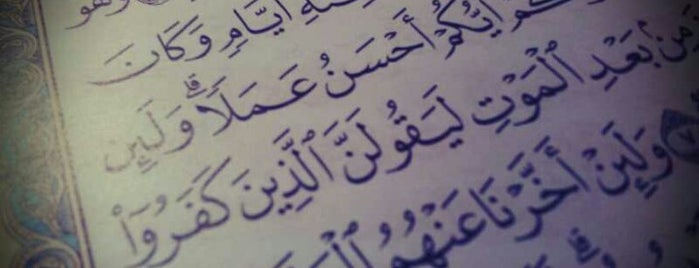 وَهُوَ
سِتَّةِ أَيَّامٍ وَكَانَ
أَيُّكُمْ أَحْسَنُ عَمَلًا ۗ وَلَئِن
مِنۢ بَعْدِ ٱلْمَوْتِ لَيَقُولَنَّ ٱلَّذِينَ كَفَرُوٓا۟
وَلَئِنْ أَخَّرْنَا عَنْهُمُ